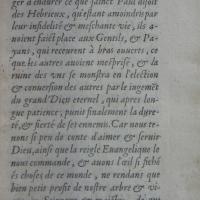 ger à endurer ce que sainct Paul disoit
des Hebrieux, qu'estant amoindris par
leur infidelité & meschante vie, ils a-
uoient faict place aux Gentils, & Pa-
yans, qui receurent à bras ouuerts, ce
que les autres auoient mesprisé, & la
ruine des vns se monstra en l'election
& conuersion des autres par le iugemēt
du grand Dieu eternel, qui apres lon-
gue patience, punit finalement la dure-
té, & fierté de ses ennemis. Car nous te-
nons si peu de conte d'aimer & seruir
Dieu, ainsi que la reigle Euangelique le
nous commande, & auons l'œil si fiché
és choses de ce monde, ne rendans que
bien petit profit de nostre arbre & vi-